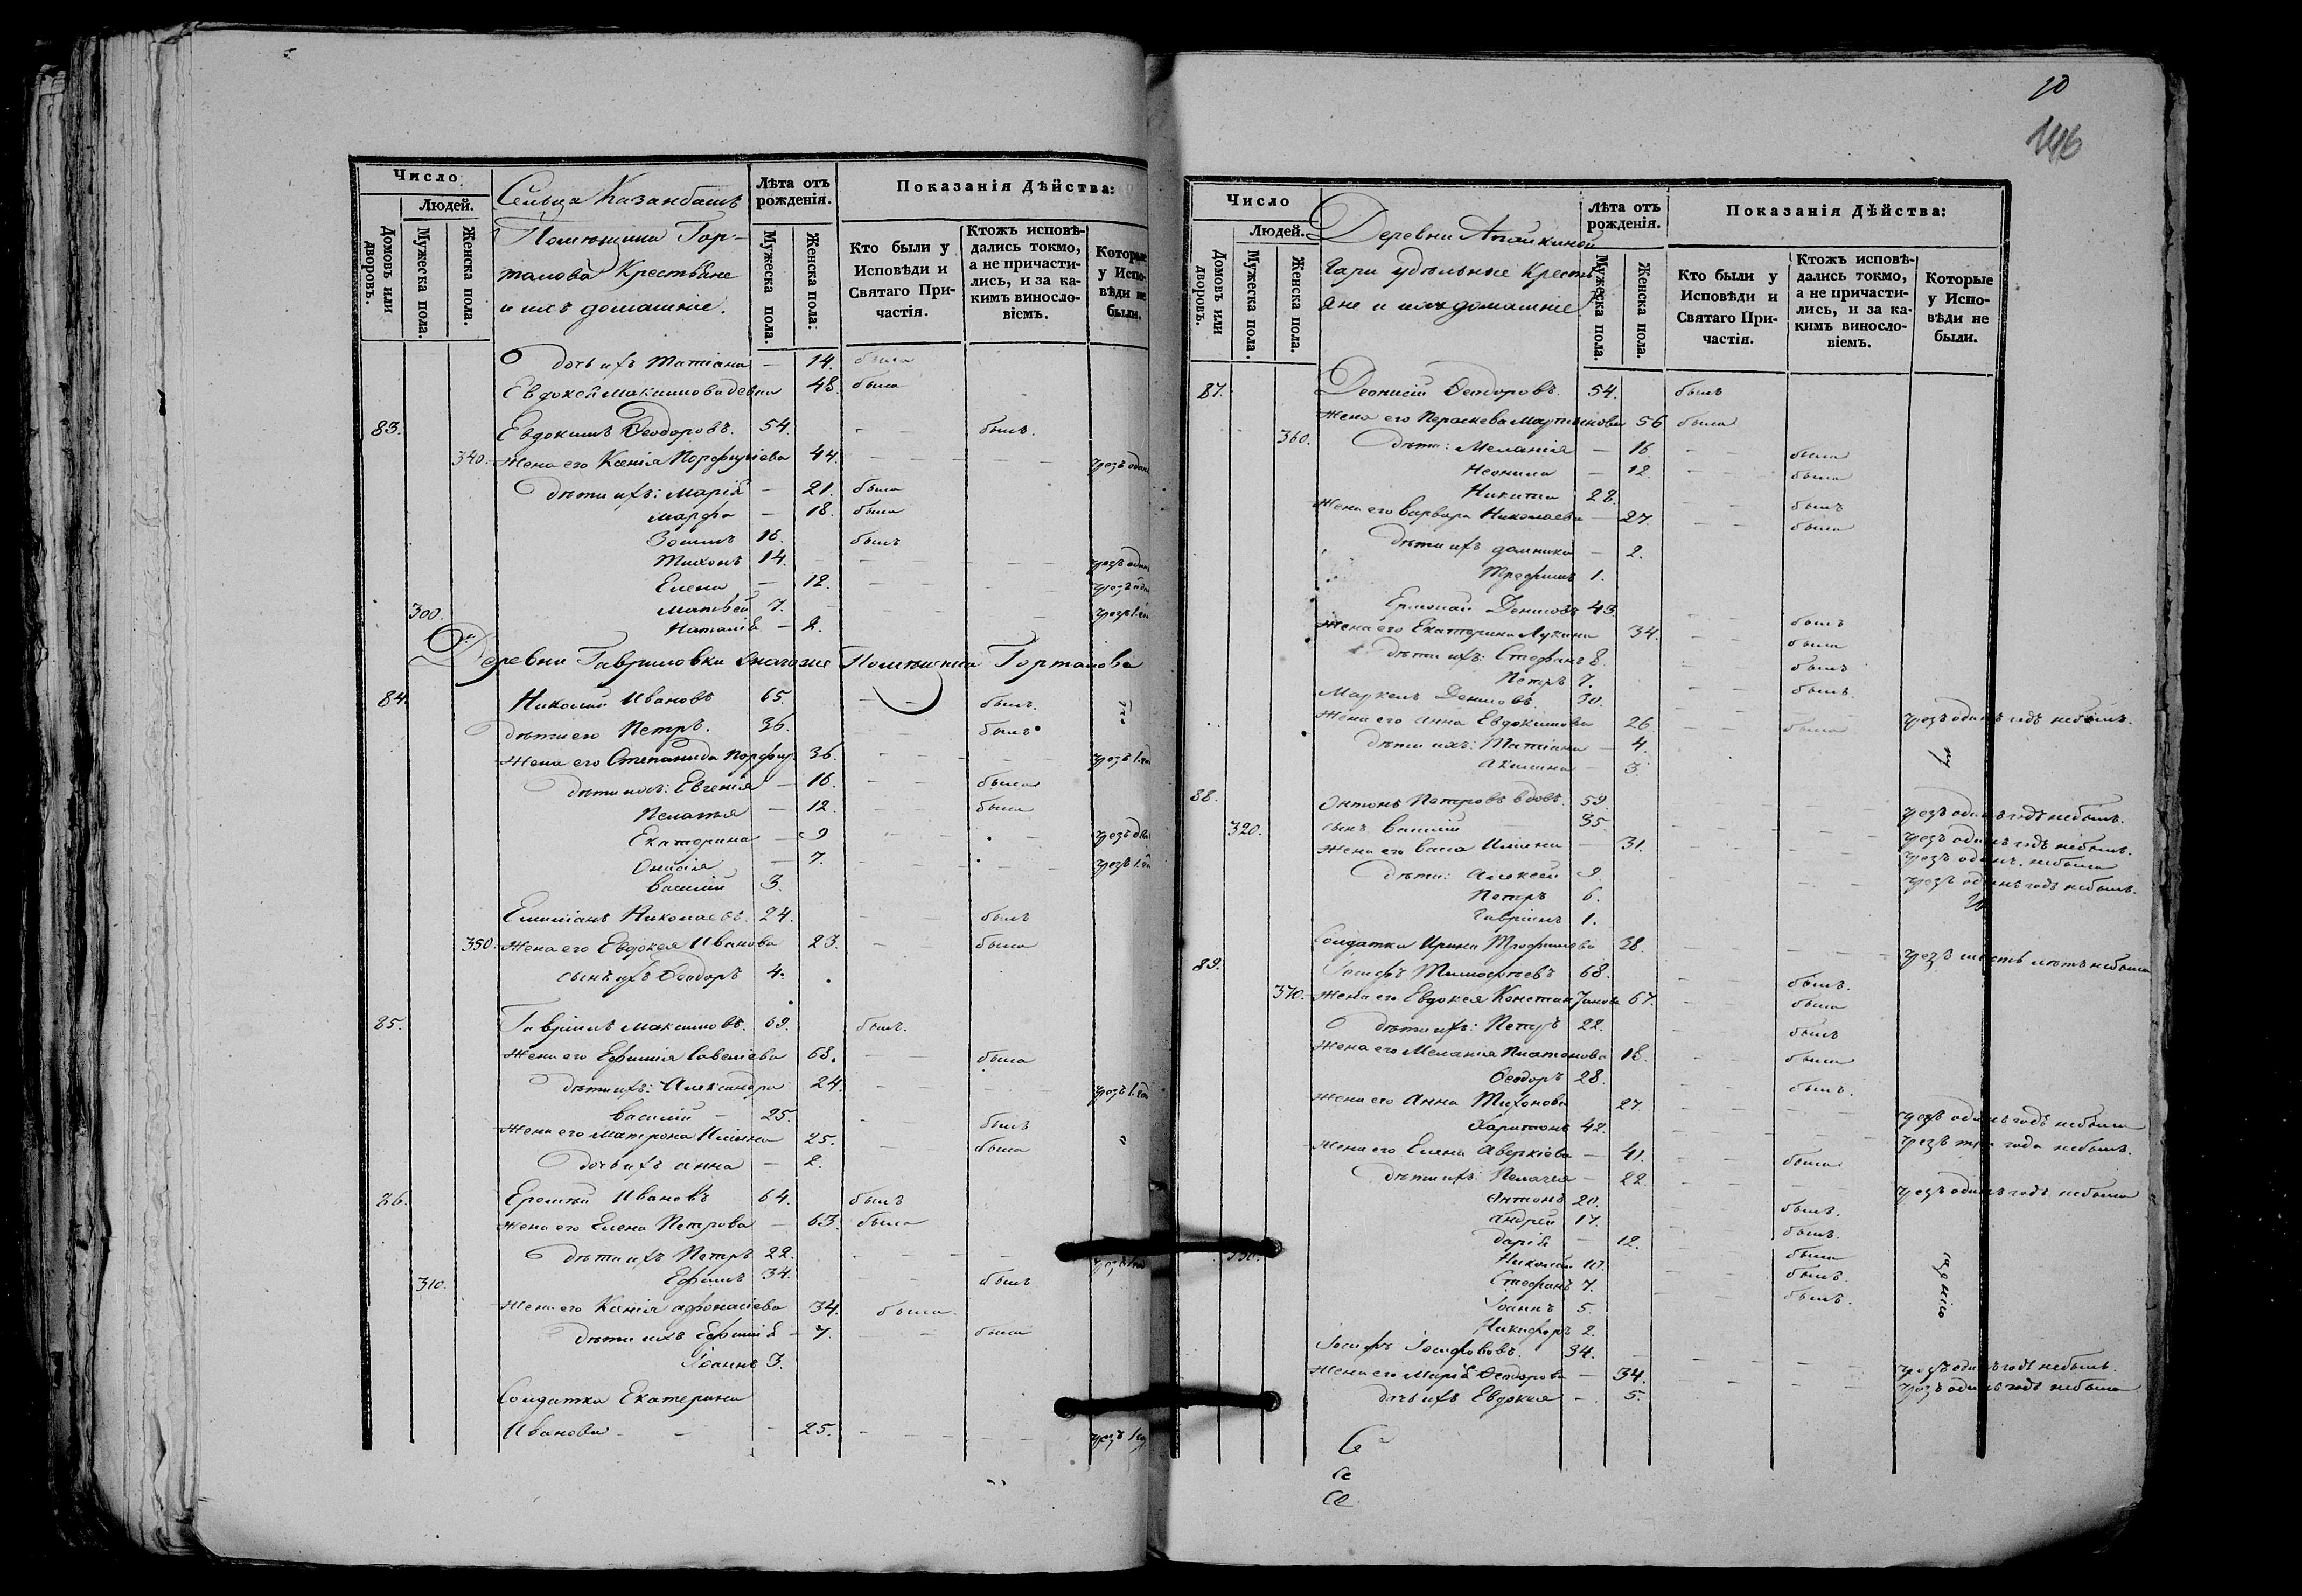 Число
Людей.
Домовъ или дворовъ.
Мужеска пола.
Женска пола.
Сельца Казанбашъ
Помѣщика Гор-
талова Крестьяне
и ихъ домашніе.
Лѣта отъ рожденія.
Мужеска пола.
Женска пола.
Показанія Дѣйства:
Кто были у Исповѣди и Святаго Причастія.
Ктожъ исповѣдались токмо, а не причастились, и за какимъ винословіемъ.
Которые у Исповѣди не были.
дочь ихъ Татіана — 14. была
Евдокея Максимова девка 48. была
83. Евдокимъ Ѳеодоровъ. 54. - - былъ.
340. Жена его Ксенія Порфиріева 44. - - - - чрезъ
дѣти ихъ: Марія — 21. была
Марфа — 18. была
Зотикъ 16. былъ
Тихонъ 14. - - - - чрезъ
Елена — 12. - - - чрезъ
300. Матвей 7. - - - чрезъ 1.
Наталія — 2.
Деревни Гавриловки Помѣщика Горталова
84. Николай Ивановъ 65. - - былъ.
дѣти его Петръ. 36. - - былъ
Жена его Степанида Порфир. 36. - - - - чрезъ 1.
дѣти ихъ: Евгенія — 16. - - была
Пелагея — 12. - - была
Екатерина — 9 - - - чрезъ
Онисія — 7. - - - чрезъ 1.
Василій 3.
Емиліанъ Николаевъ. 24. - - былъ
350. Жена его Евдокея Иванова 23. - - была
сынъ ихъ Ѳеодоръ 4.
85. Гавріилъ Максимовъ. 69. былъ.
Жена его Ефимія Савеліева 68. - - была
дѣти ихъ: Александра 24. - - - чрезъ 1. год
Василій — 25. - - былъ
Жена его Матрона Ильина 25. - была
дочь ихъ Анна — 2.
86. Еремѣй Ивановъ 64. былъ
Жена его Елена Петрова — 63. была
дѣти ихъ Петръ 22. - - - -
310. Ефимъ 34. - былъ
Жена его Ксенія Афонасіева 34. была.
дѣти ихъ Ефимія — 7. - была
Іоаннъ 3.
Солдатка Екатерина
Иванова - - - 25. - - - - чрезъ 1
10
146
Число
Людей.
Домовъ или дворовъ.
Мужеска пола.
Женска пола.
Деревни Апайкиной
Гари удѣльные Кресть-
яне и ихъ домашніе
Лѣта отъ рожденія.
Мужеска пола.
Женска пола.
Показанія Дѣйства:
Кто были у Исповѣди и Святаго Причастія.
Ктожъ исповѣдались токмо, а не причастились, и за какимъ винословіемъ.
Которые у Исповѣди не были.
87. Деонисій Ѳеодоровъ. 54. былъ
Жена его Параскева Мартинова 56 была
360. дѣти: Меланія — 16. - - была
Неонила — 12. - - была
Никита 28. - - былъ
Жена его Варвара Николаева — 27. - - была
дѣти ихъ Домника — 2.
Трефилъ 1.
Ермолай Денисовъ 43. - - былъ
Жена его Екатерина Лукина 34. - - была
дѣти ихъ: Стефанъ 8. - былъ
Петръ 7. - - былъ.
Маркелъ Денисовъ 30. - - - чрезъ одинъ годъ небылъ.
Жена его Анна Евдокимова 26. - - была
дѣти ихъ: Татіана — 4.
Акилина — 3.
88. Антонъ Петровъ вдовъ. 59. - - - чрезъ одинъ годъ небылъ.
320. сынъ Василій 35. - - - чрезъ одинъ годъ небылъ.
Жена его Васса Ильина — 31. - - - чрезъ одинъ. небыла
дѣти: Алексей 9. - - чрезъ одинъ годъ небылъ.
Петръ 6.
Гавріилъ 1.
Солдатка Ирина Трофимова 38. - - - чрезъ шесть лѣтъ небыла
89. Іосифъ Тимофѣевъ 68. - былъ.
370. Жена его Евдокея Константинова 67. - была
дѣти ихъ: Петръ 22. - былъ
Жена его Мелания Платонова 18. - - была
Ѳеодоръ 28. - - былъ.
Жена его Анна Тихонова 27. - - - чрезъ одинъ годъ небыла
Харитонъ 42. - - - чрезъ три года небылъ.
Жена его Елена Аверкіева — 41. - - была
дѣти ихъ: Пелагея — 22. - - - чрезъ одинъ годъ небыла
Антонъ 20. - - былъ.
Андрей 17. - - былъ.
Дарія — 12. - - была
330. Николай 10. - - былъ.
Стефанъ 7. - былъ.
Іоаннъ 5.
Никифоръ 2.
Іосифъ Іосифовъ. 34. - - - чрезъ одинъ годъ небылъ.
Жена его Марія Ѳеодорова — 34. - - - чрезъ одинъ годъ небыла
дочь ихъ Евдокея — 5.